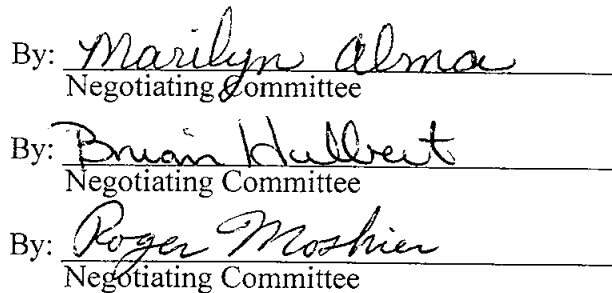 By: Marilyn Alma
Negotiating Committee
By: Brian Hulbert
Negotiating Committee
By: Roger Moshier
Negotiating Committee